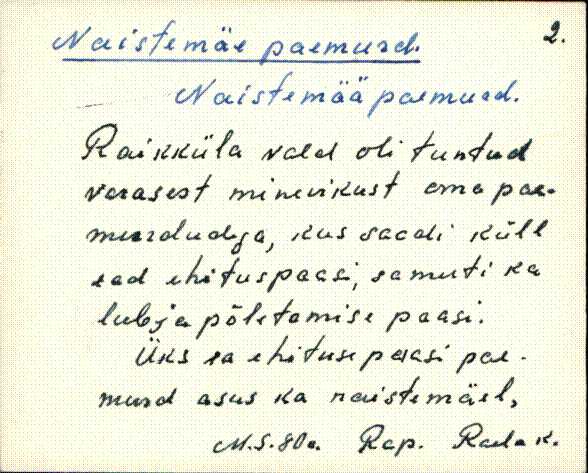 2.
Naistemäe paemurd.
Naistemää paemurd.
Raikküla vald oli tuntud
varasest minevikust oma pae-
murdudega, kus saadi küll
ead ehituspaasi, samuti ka
lubja põletamise paasi.
Üks ea ehituse paasi pae-
murd asus ka naistemäel,
M.S. 80a. Rap. Raela k.